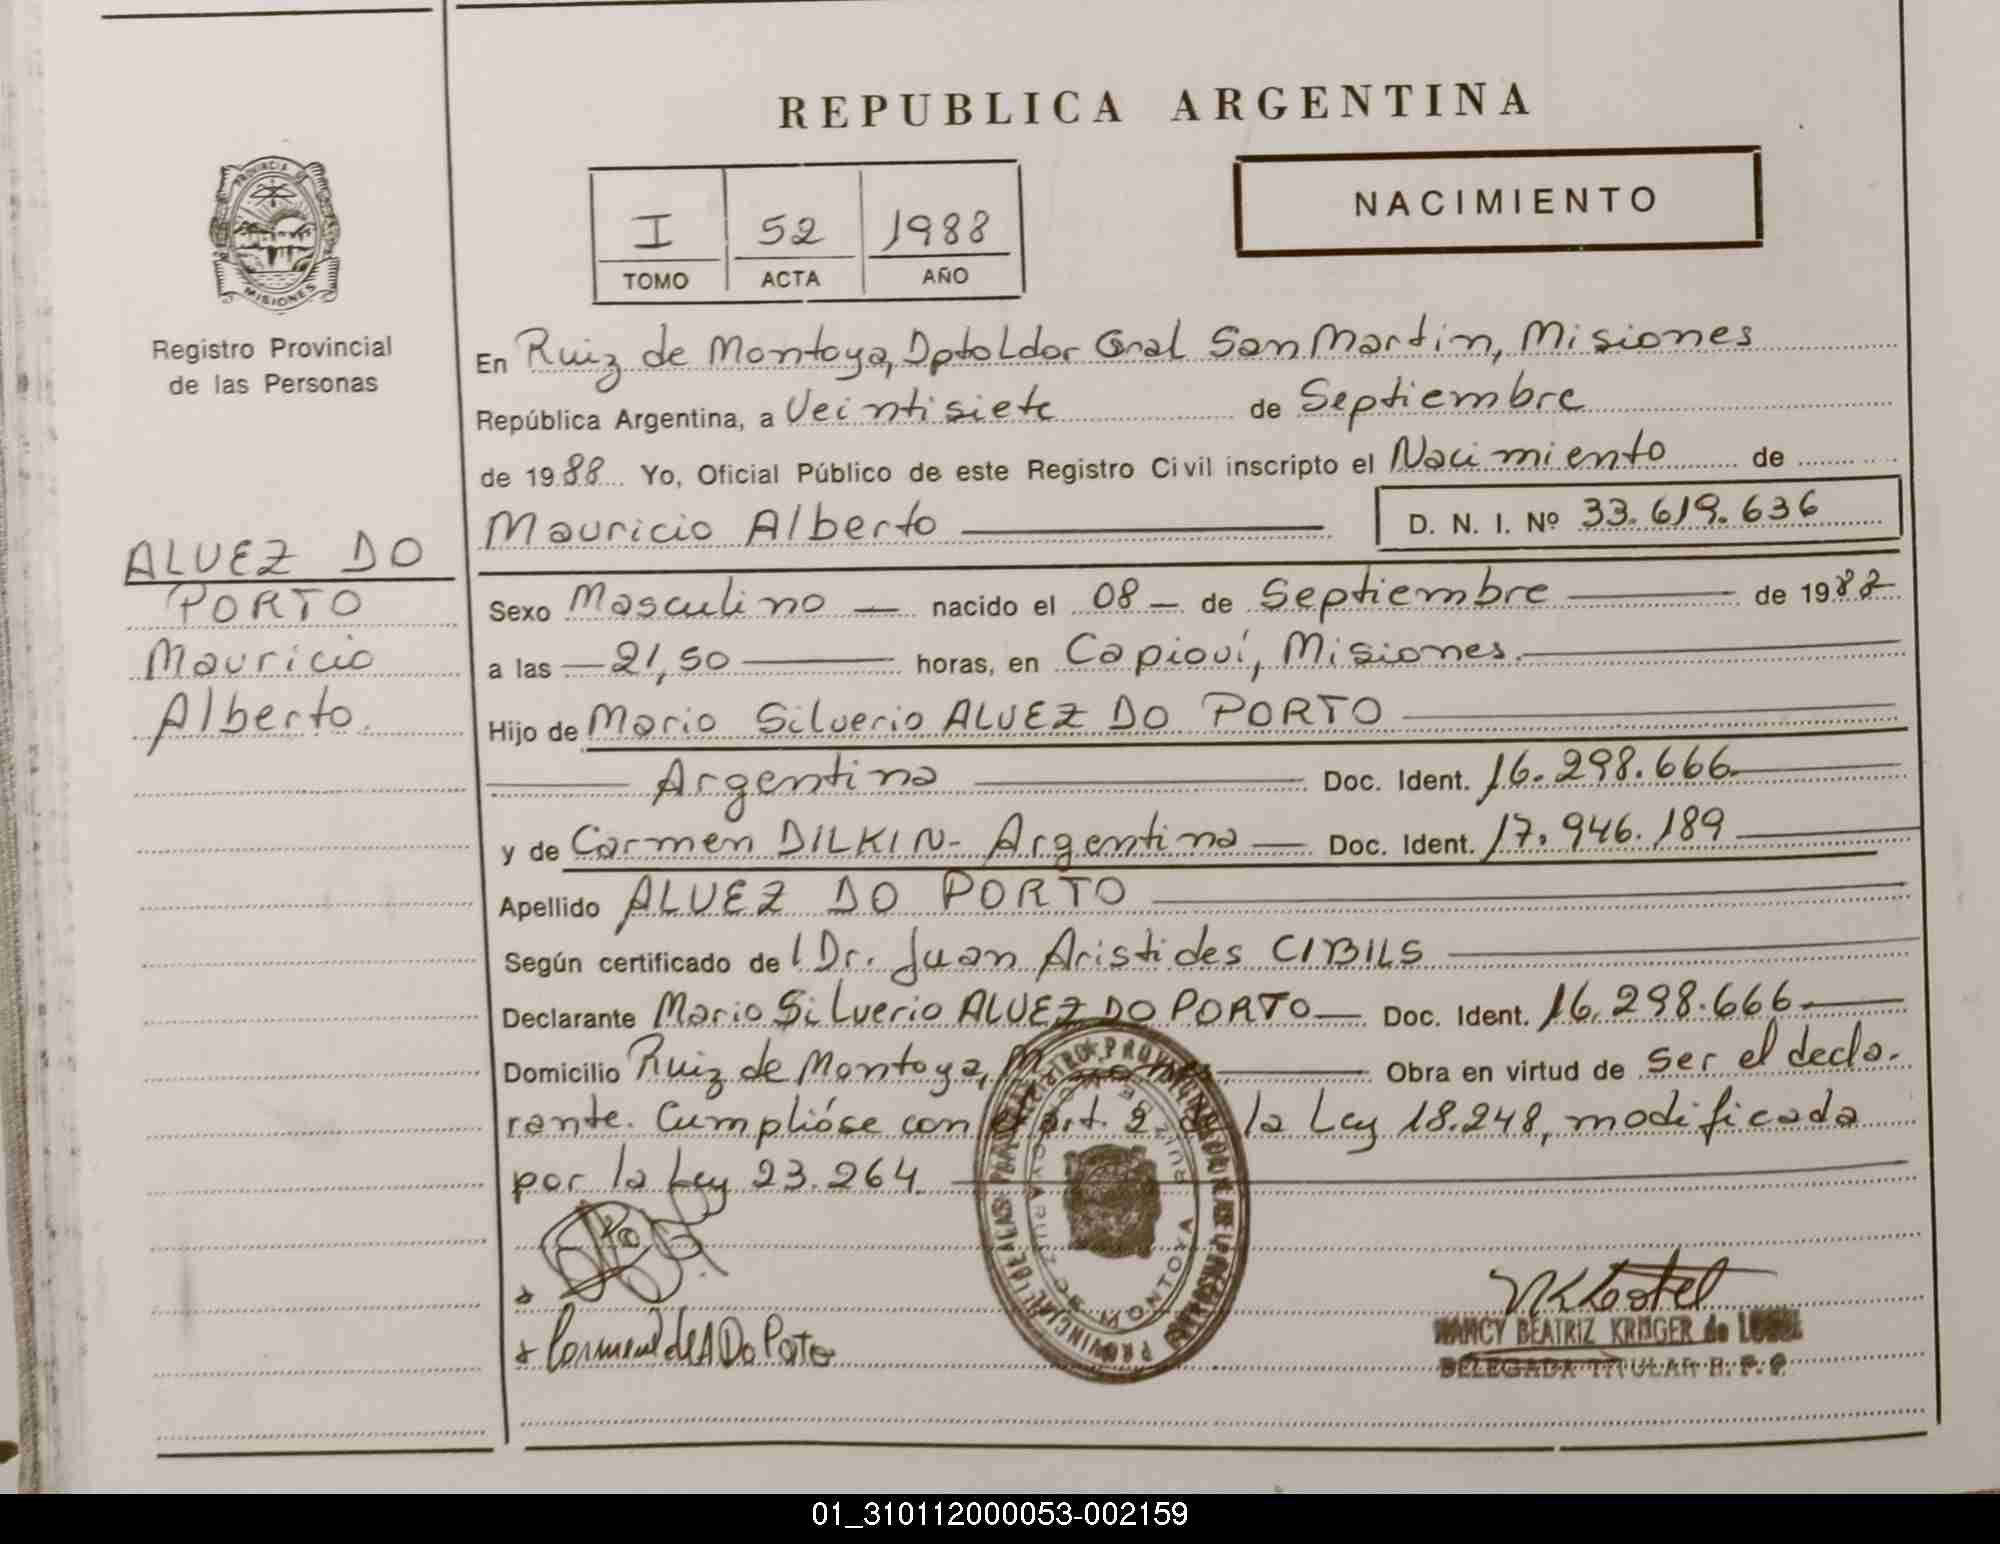 REPUBLICA ARGENTINA
NACIMIENTO
I 52 1988
TOMO ACTA AÑO
PROVINCIA DE
MISIONES
Registro Provincial
de las Personas
ALVEZ DO
PORTO
Mauricio
Alberto.
En Ruiz de Montoya, Dpto Ldor Gral San Martin, Misiones
República Argentina, a Veintisiete de Septiembre
de 1988 Yo, Oficial Público de este Registro Civil inscripto el Nacimiento de
Mauricio Alberto D. N. I. Nº 33.619.636
Sexo Masculino — nacido el 08 — de Septiembre — de 1988
a las — 21,50 — horas, en Capioví, Misiones.
Hijo de Mario Silverio ALVEZ DO PORTO
Argentino Doc. Ident. 16.298.666
y de Carmen DILKIN - Argentina — Doc. Ident. 17.946.189
Apellido ALVEZ DO PORTO
Según certificado del Dr. Juan Aristides CIBILS
Declarante Mario Silverio ALVEZ DO PORTO — Doc. Ident. 16.298.666
Domicilio Ruiz de Montoya, Misiones — Obra en virtud de ser el decla-
rante. Cumplióse con el art. 2 de la Ley 18.248, modificada
por la Ley 23.264
RUIZ DE MONTOYA
Carmen D de A Do Porto
NANCY BEATRIZ KRUGER de
DELEGADA TITULAR R. P. P.
01_310112000053-002159